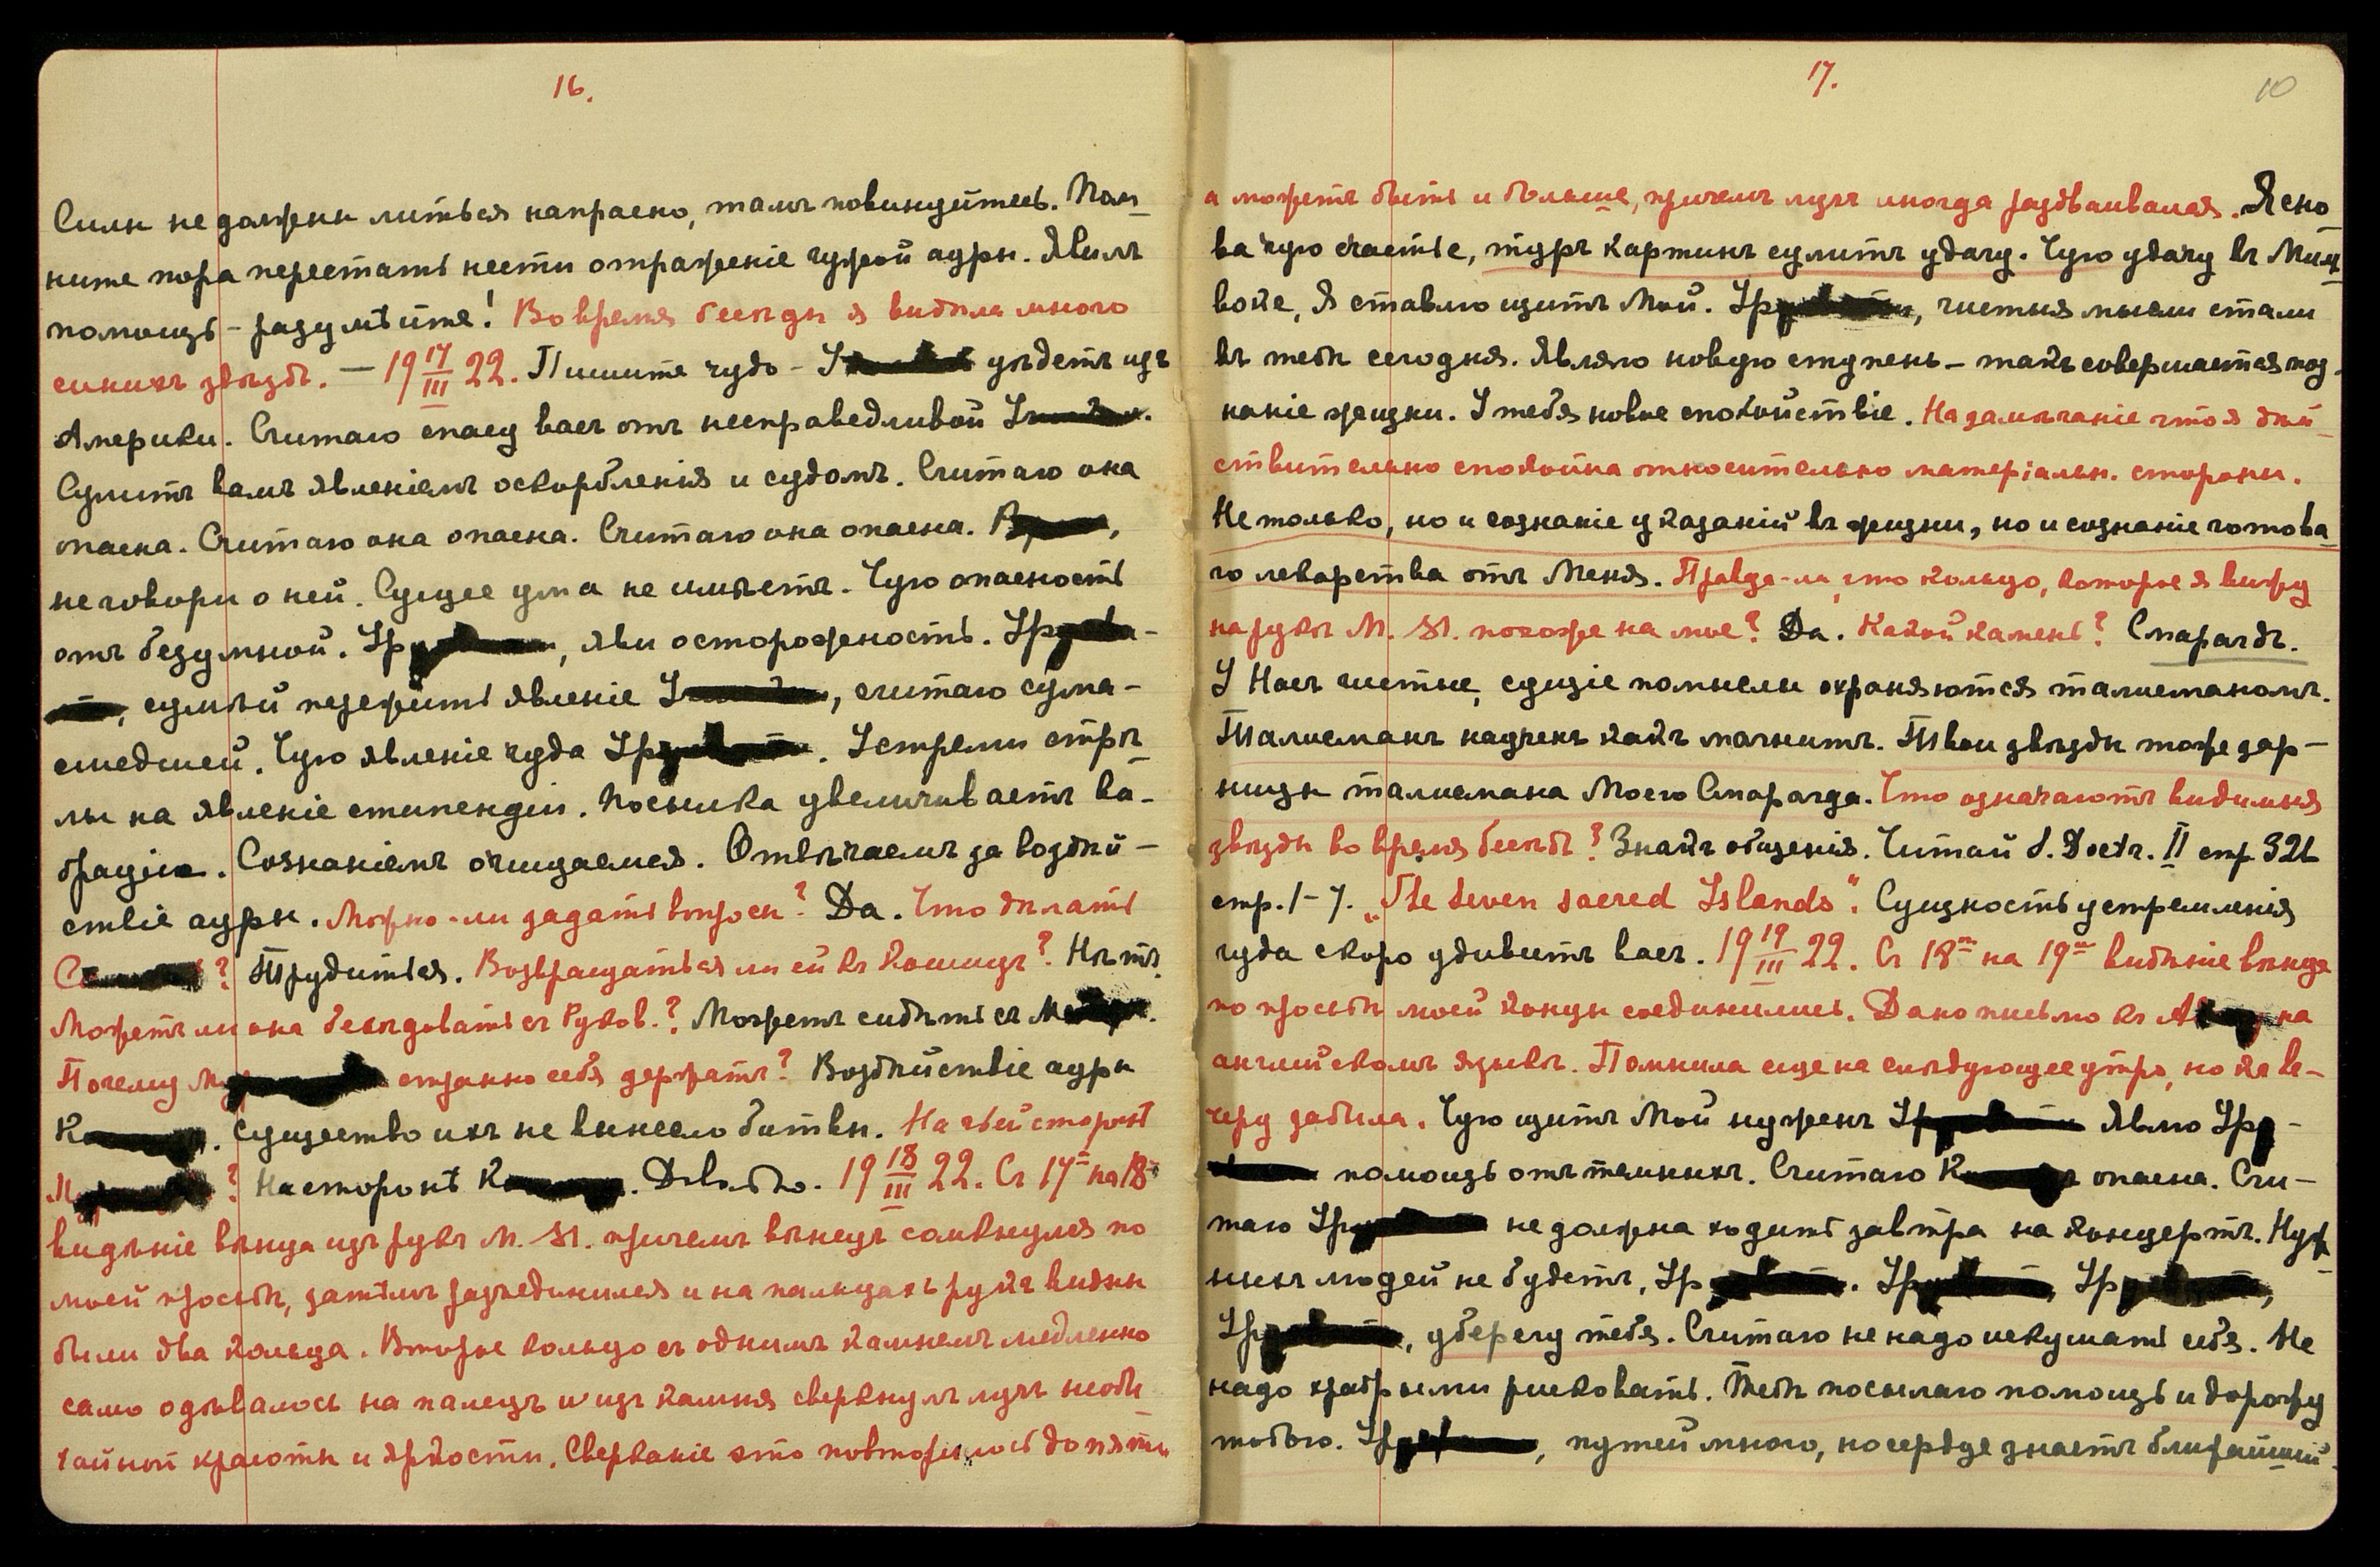 16.
Силы не должны литься напрасно, тамъ повинуйтесь. Пом-
ните пора перестать нести отраженіе чужой ауры. Явилъ
помощь - разумѣйте! Во время бесѣды я видѣла много
синихъ звѣздъ. — 19 17/III 22. Пишите чудо - У уѣдетъ изъ
Америки. Считаю спасу васъ отъ несправедливой У
Сулитъ вамъ явленіемъ оскорбленія и судомъ. Считаю она
опасна. Считаю она опасна. Считаю она опасна.
не говори о ней. Сущее ума не имѣетъ. Чую опасность
отъ безумной. Ур, яви осторожность. Ур-
, сумѣй пережить явленіе У, считаю сума-
сшедшей. Чую явленіе чуда Ур. Устреми стрѣ-
лы на явленіе стипендіи. Посылка увеличиваетъ ви-
браціи. Сознаніемъ очищаемся. Отвѣчаемъ за воздѣй-
ствіе ауры. Можно-ли задать вопросы? Да. Что дѣлать
С? Трудиться. Возвращаться ли ей къ Кошицъ? Нѣтъ.
Можетъ ли она бесѣдовать съ Руков.? Можетъ сидѣть съ М.
Почему Му странно себя держатъ? Воздѣйствіе ауры
К. Существо ихъ не вынесло битвы. На чьей сторонѣ
Му? На сторонѣ К. Довольно. 19 18/III 22. Съ 17го на 18е
видѣніе вѣнца изъ рукъ М. М. причемъ вѣнецъ сомкнулся по
моей просьбѣ, затѣмъ разъединился и на пальцахъ рукъ видны
были два кольца. Второе кольцо съ однимъ камнемъ медленно
само одѣвалось на палецъ и изъ камня сверкнулъ лучъ необы
чайной красоты и яркости. Сверканіе это повторилось до пяти
17.
10
а можетъ быть и больше, причемъ лучъ иногда раздваивался. Я сно
ва чую счастье, туръ картинъ сулитъ удачу. Чую удачу въ Мил
воке, Я ставлю щитъ Мой. Ур, чистыя мысли стали
въ тебѣ сегодня. Являю новую ступень - такъ совершается поз-
наніе жизни. У тебя новое спокойствіе. На замѣчаніе что я дѣй-
ствительно спокойна относительно матеріальн. стороны.
Не только, но и сознаніе указаній въ жизни, но и сознаніе готова-
го лекарства отъ Меня. Правда-ли, что кольцо, которое я вижу
на рукѣ М. М. похоже на мое? Да. Какой камень? Смарагдъ.
У Насъ чистые, сущіе помыслы охраняются талисманомъ.
Талисманъ наученъ какъ магнитъ. Твои звѣзды тоже зар-
ницы талисмана Моего Смарагда. Что означаютъ видимыя
звѣзды во время бесѣдъ? Знакъ общенія. Читай S. Doctr. II стр. 326
стр. 1-7. „The Seven sacred Islands". Сущность устремленія
чуда скоро удивитъ васъ. 19 19/III 22. Съ 18го на 19е видѣніе вѣнца
по просьбѣ моей концы соединились. Дано письмо къ А на
англійскомъ языкѣ. Помнила еще на слѣдующее утро, но къ ве-
черу забыла. Чую щитъ Мой нуженъ Ур Явлю Уру-
помощь отъ темныхъ. Считаю К опасна. Счи-
таю Ур не должна ходить завтра на концертъ. Нуж
ныхъ людей не будетъ, Ур. Ур, Ур,
Ур, уберегу тебя. Считаю не надо искушать себя. Не
надо храбрыми рисковать. Тебѣ посылаю помощь и дорожу
тобою. Ур, путей много, но сердце знаетъ ближайшій